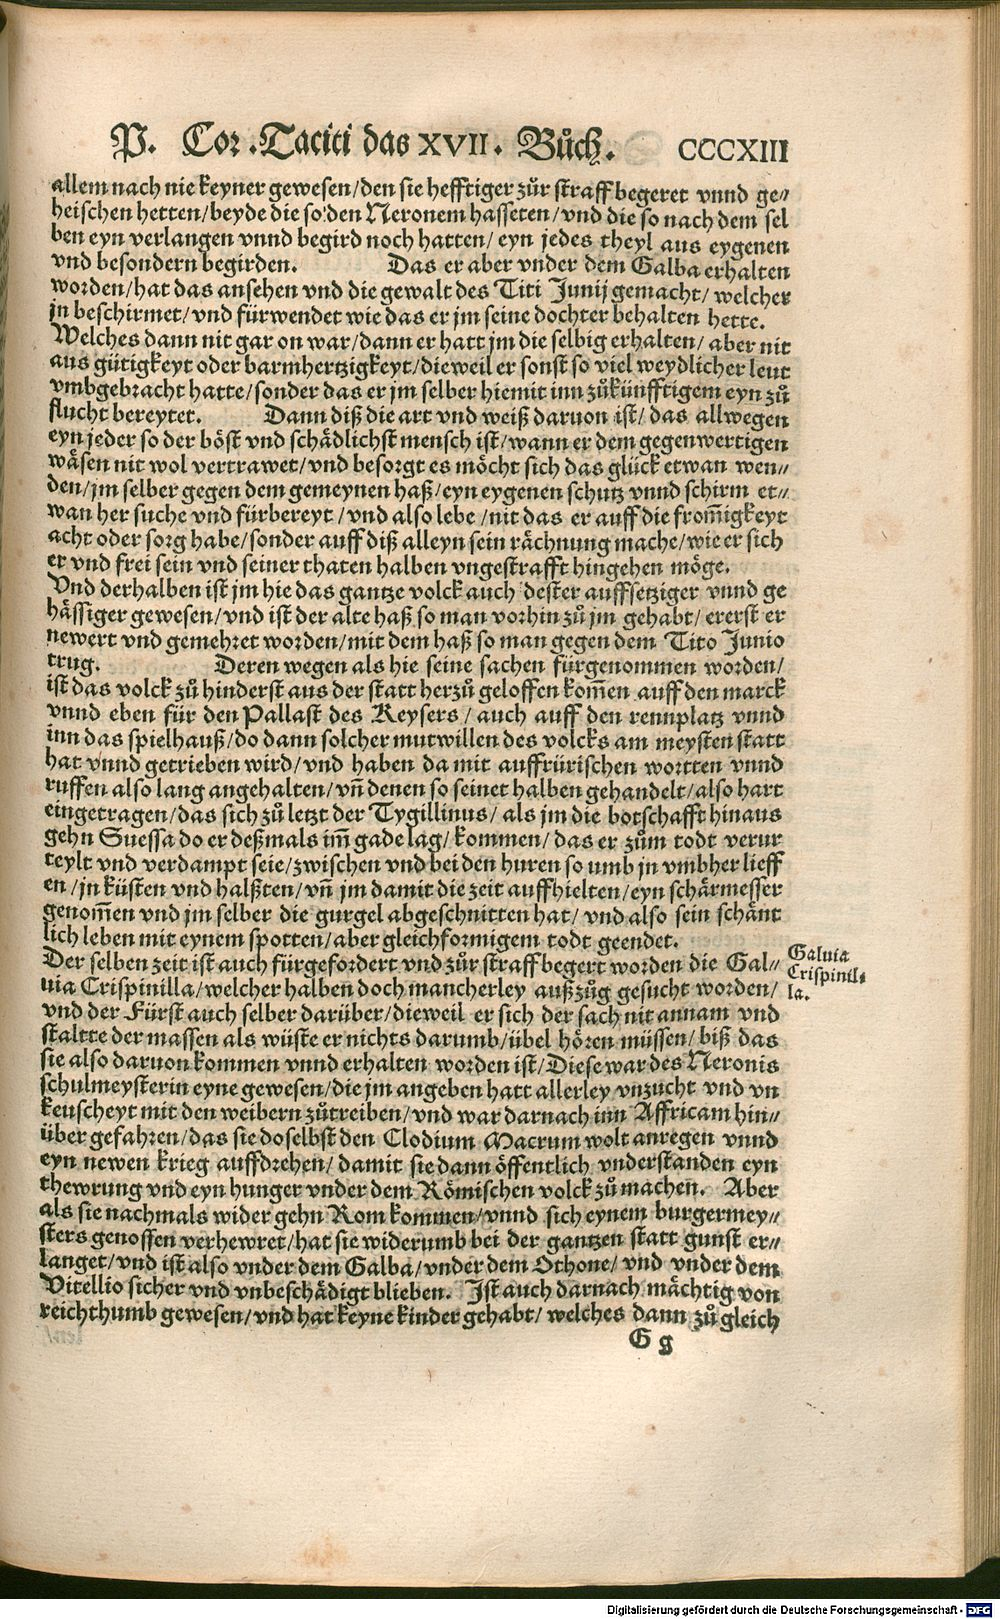 P. Cor. Taciti das XVII. Bůch. CCCXIII
allem nach nie keyner gewesen/den sie hefftiger zůr straff begeret vnnd ge⸗
heischen hetten/beyde die so den Neronem hasseten/vnd die so nach dem sel
ben eyn verlangen vnnd begird noch hatten/ eyn jedes theyl aus eygenen
vnd besondern begirden. Das er aber vnder dem Galba erhalten
worden/hat das ansehen vnd die gewalt des Titi Junij gemacht/ welcher
jn beschirmet/vnd fürwendet wie das er jm seine dochter behalten hette.
Welches dann nit gar on war/dann er hatt jm die selbig erhalten/ aber nit
aus gütigkeyt oder barmhertzigkeyt/dieweil er sonst so viel weydlicher leut
vmbgebracht hatte/sonder das er jm selber hiemit inn zůkünfftigem eyn zů
flucht bereytet. Dann diß die art vnd weiß daruon ist/ das allwegen
eyn jeder so der böst vnd schädlichst mensch ist/wann er dem gegenwertigen
wäsen nit wol vertrawet/vnd besorgt es möcht sich das glück etwan wen⸗
den/jm selber gegen dem gemeynen haß/eyn eygenen schutz vnnd schirm et⸗
wan her suche vnd fürbereyt/vnd also lebe/nit das er auff die from̃igkeyt
acht oder sorg habe/sonder auff diß alleyn sein rächnung mache/wie er sich
er vnd frei sein vnd seiner thaten halben vngestrafft hingehen möge.
Vnd derhalben ist jm hie das gantze volck auch dester auffsetziger vnnd ge
hässiger gewesen/vnd ist der alte haß so man vorhin zů jm gehabt/ererst er
newert vnd gemehret worden/mit dem haß so man gegen dem Tito Junio
trug. Deren wegen als hie seine sachen fürgenommen worden/
ist das volck zů hinderst aus der statt herzů geloffen kom̃en auff den marck
vnnd eben für den Pallast des Keysers/ auch auff den rennplatz vnnd
inn das spielhauß/do dann solcher mutwillen des volcks am meysten statt
hat vnnd getrieben wird/vnd haben da mit auffrürischen wortten vnnd
ruffen also lang angehalten/vñ denen so seinet halben gehandelt/also hart
eingetragen/das sich zů letzt der Tygillinus/ als jm die botschafft hinaus
gehn Suessa do er deßmals im̃ gade lag/ kommen/das er zům todt verur
teylt vnd verdampt seie/zwischen vnd bei den huren so umb jn vmbher lieff
en/jn küsten vnd halßten/vñ jm damit die zeit auffhielten/eyn schärmesser
genom̃en vnd jm selber die gurgel abgeschnitten hat/ vnd also sein schänt
lich leben mit eynem spotten/aber gleichformigem todt geendet.
Der selben zeit ist auch fürgefordert vnd zůr straff begert worden die Gal⸗
uia Crispinilla/welcher halben doch mancherley außzůg gesucht worden/
vnd der Fürst auch selber darüber/dieweil er sich der sach nit annam vnd
staltte der massen als wüste er nichts darumb/übel hören müssen/ biß das
sie also daruon kommen vnnd erhalten worden ist/Diese war des Neronis
schulmeysterin eyne gewesen/die jm angeben hatt allerley vnzucht vnd vn
keuscheyt mit den weibern zůtreiben/vnd war darnach inn Affricam hin⸗
über gefahren/das sie doselbst den Clodium Macrum wolt anregen vnnd
eyn newen krieg auffdrehen/ damit sie dann öffentlich vnderstanden eyn
thewrung vnd eyn hunger vnder dem Römischen volck zů machen. Aber
als sie nachmals wider gehn Rom kommen/vnnd sich eynem burgermey⸗
sters genossen verhewret/hat sie widerumb bei der gantzen statt gunst er⸗
langet/vnd ist also vnder dem Galba/vnder dem Othone/ vnd vnder dem
Vitellio sicher vnd vnbeschädigt blieben. Ist auch darnach mächtig von
reichthumb gewesen/vnd hat keyne kinder gehabt/ welches dann zů gleich
G g
Galuia
Crispinil⸗
la.
Digitalisierung gefördert durch die Deutsche Forschungsgemeinschaft - DFG